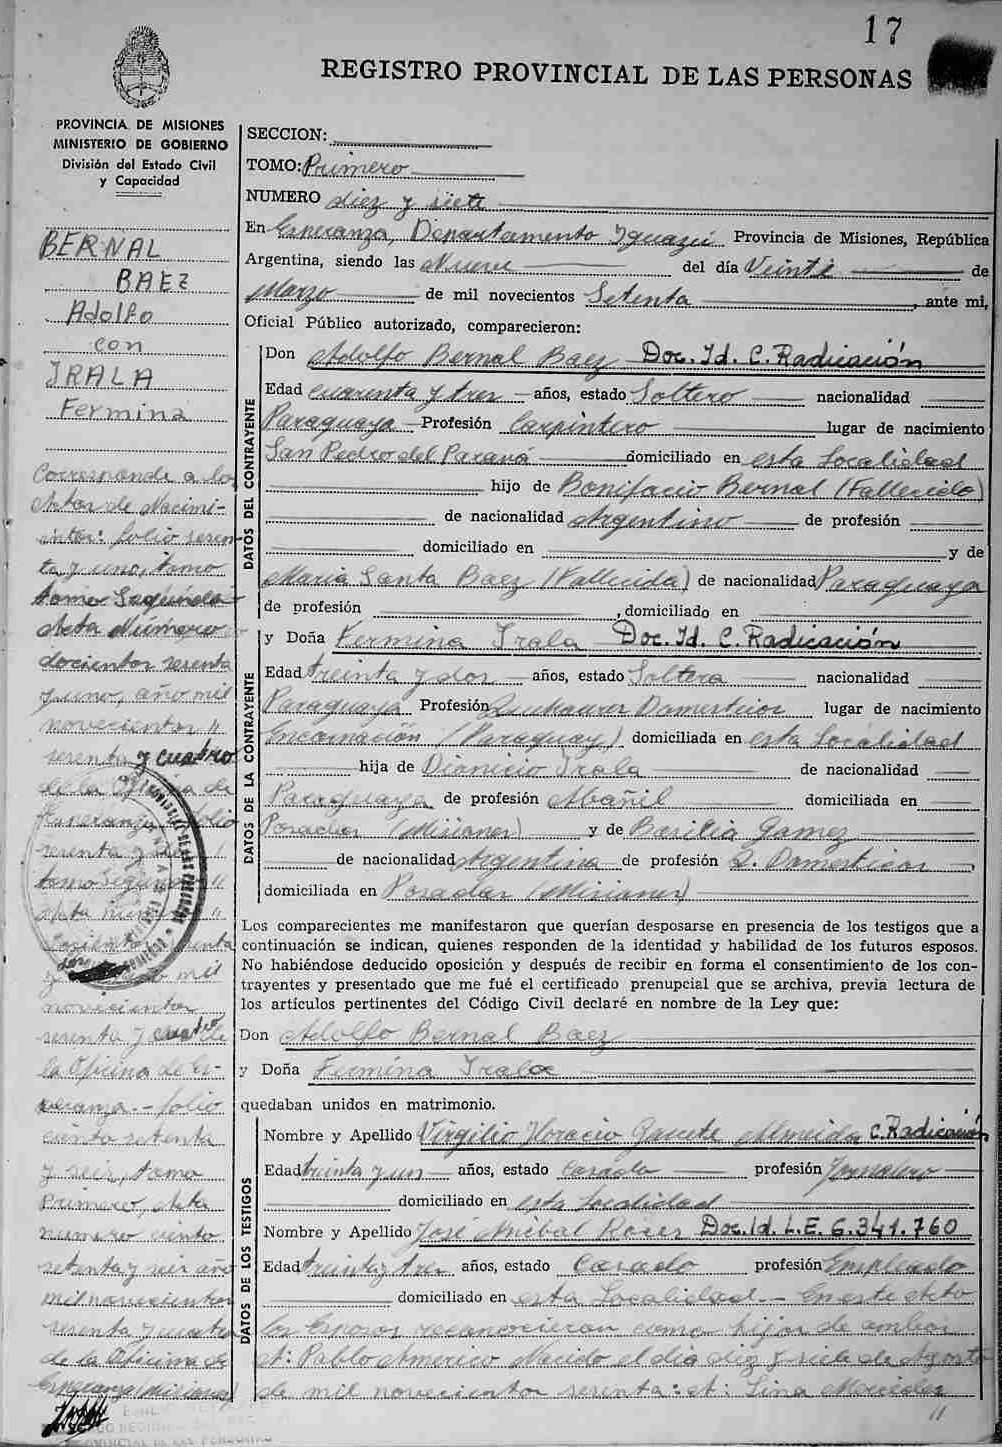 17
REGISTRO PROVINCIAL DE LAS PERSONAS
PROVINCIA DE MISIONES
MINISTERIO DE GOBIERNO
División del Estado Civil
y Capacidad
BERNAL
BAEZ
Adolfo
con
IRALA
Fermina
Corresponde a los
Actas de Nacimi-
entos: folio sesen-
ta y uno, tomo
tomo Segundo
Acta Número
docientos sesenta
y uno, año mil
novecientos "
sesenta y cuatro
de la Oficina de
Esperanza folio
sesenta y
tomo Segundo "
acta número "
mil
novecientos
sesenta y cuatro de
la Oficina de Es-
peranza.- folio
ciento setenta
y seis, tomo
Primero, Acta
número ciento
setenta y seis año
mil novecientos
sesenta y cuatro
de la Oficina de
Esperanza Misiones
SECCION:
TOMO: Primero
NUMERO diez y siete
En Esperanza, Departamento Iguazú Provincia de Misiones, República
Argentina, siendo las Nueve del día Veinte de
Marzo de mil novecientos Setenta, ante mi,
Oficial Público autorizado, comparecieron:
DATOS DEL CONTRAYENTE
Don Adolfo Bernal Baez Doc. Id. C. Radicación
Edad cuarenta y tres años, estado Soltero nacionalidad
Paraguaya Profesión Carpintero lugar de nacimiento
San Pedro del Paraná domiciliado en esta Localidad
hijo de Bonifacio Bernal (Fallecido)
de nacionalidad Argentino de profesión
domiciliado en y de
Maria Santa Baez (Fallecida) de nacionalidad Paraguaya
de profesión , domiciliado en
DATOS DE LA CONTRAYENTE
y Doña Fermina Irala Doc. Id. C. Radicación
Edad treinta y dos años, estado Soltera nacionalidad
Paraguaya Profesión Quehaceres Domesticos lugar de nacimiento
Encarnación (Paraguay) domiciliada en esta Localidad
hija de Dionicio Irala de nacionalidad
Paraguaya de profesión Albañil domiciliada en
Posadas (Misiones) y de Basilia Gamez
de nacionalidad Argentina de profesión Q. Domesticos,
domiciliada en Posadas (Misiones)
Los comparecientes me manifestaron que querían desposarse en presencia de los testigos que a
continuación se indican, quienes responden de la identidad y habilidad de los futuros esposos.
No habiéndose deducido oposición y después de recibir en forma el consentimiento de los con-
trayentes y presentado que me fué el certificado prenupcial que se archiva, previa lectura de
los artículos pertinentes del Código Civil declaré en nombre de la Ley que:
Don Adolfo Bernal Baez
y Doña Fermina Irala
quedaban unidos en matrimonio.
DATOS DE LOS TESTIGOS
Nombre y Apellido Virgilio Horacio Gaucete Almeida C. Radicación
Edad treinta y un años, estado Casado profesión Jornalero
domiciliado en esta Localidad
Nombre y Apellido José Anibal Roses Doc. Id. L.E. 6.341.760
Edad treinta y tres años, estado Casado profesión Empleado
domiciliado en esta Localidad.- En este Acto
los Esposos reconocieron como hijos de ambos
A: Pablo Americo Nacido el día diez y siete de Agosto
de mil novecientos sesenta: A: Lina Mercedes
"